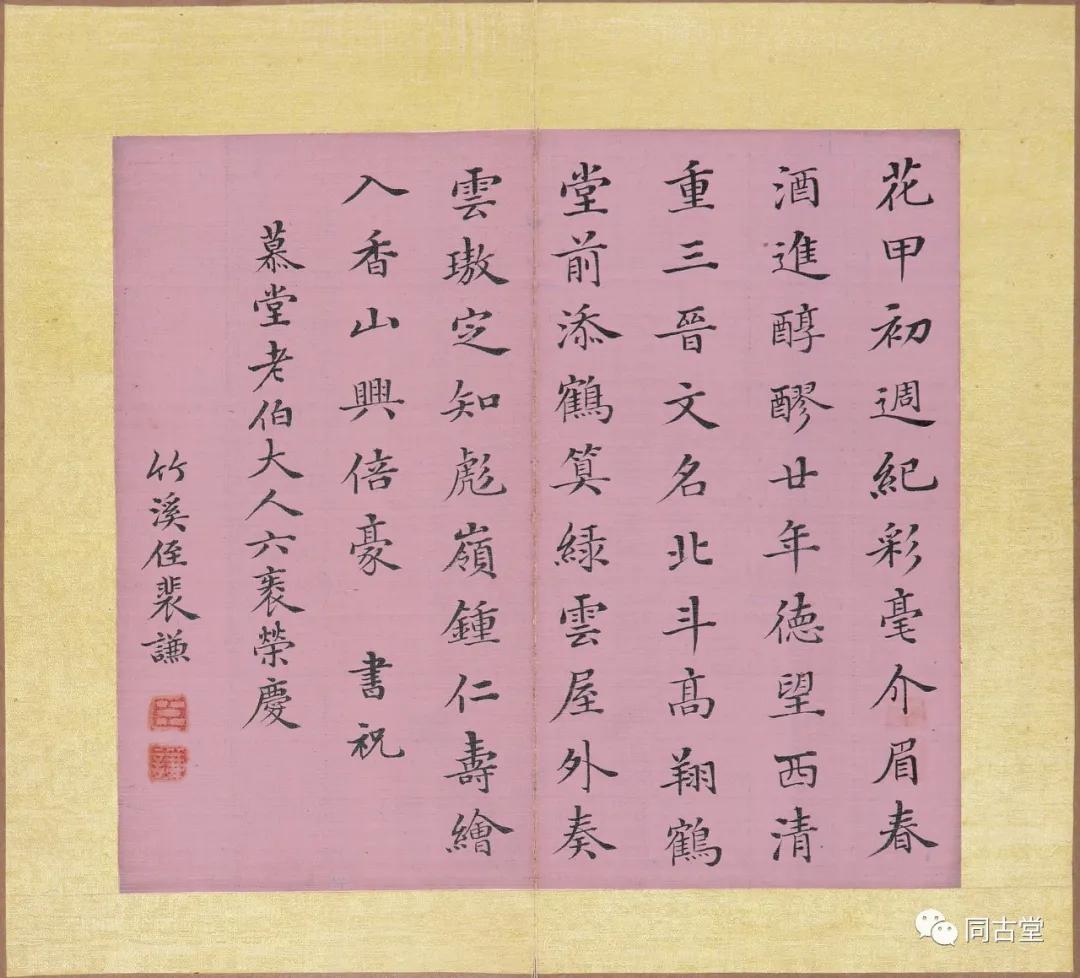 花甲初週紀彩毫介眉春
酒進醇醪廿年德望西清
重三晉文名北斗高翔鶴
堂前添鶴算緑雲屋外奏
雲璈定知彪嶺鍾仁壽繪
入香山興倍豪　書祝
慕堂老伯大人六袠榮慶
竹溪侄裴謙
臣
謙
同古堂